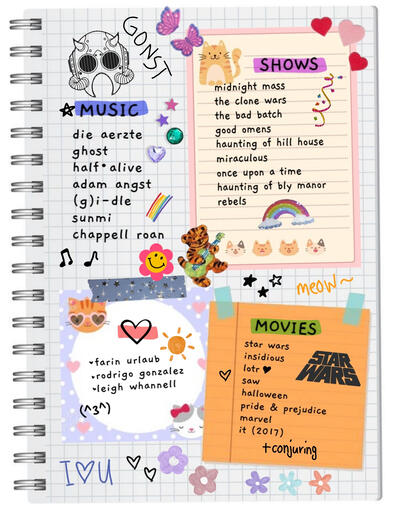 GONST
MUSIC
die aerzte
ghost
half•alive
adam angst
(g)i-dle
sunmi
chappell roan
SHOWS
midnight mass
the clone wars
the bad batch
good omens
haunting of hill house
miraculous
once upon a time
haunting of bly manor
rebels
meow~
farin urlaub
rodrigo gonzalez
leigh whannell
(^3^)
MOVIES
star wars
insidious
lotr ♥
saw
halloween
pride & prejudice
marvel
it (2017)
+conjuring
STAR
WARS
I♡U